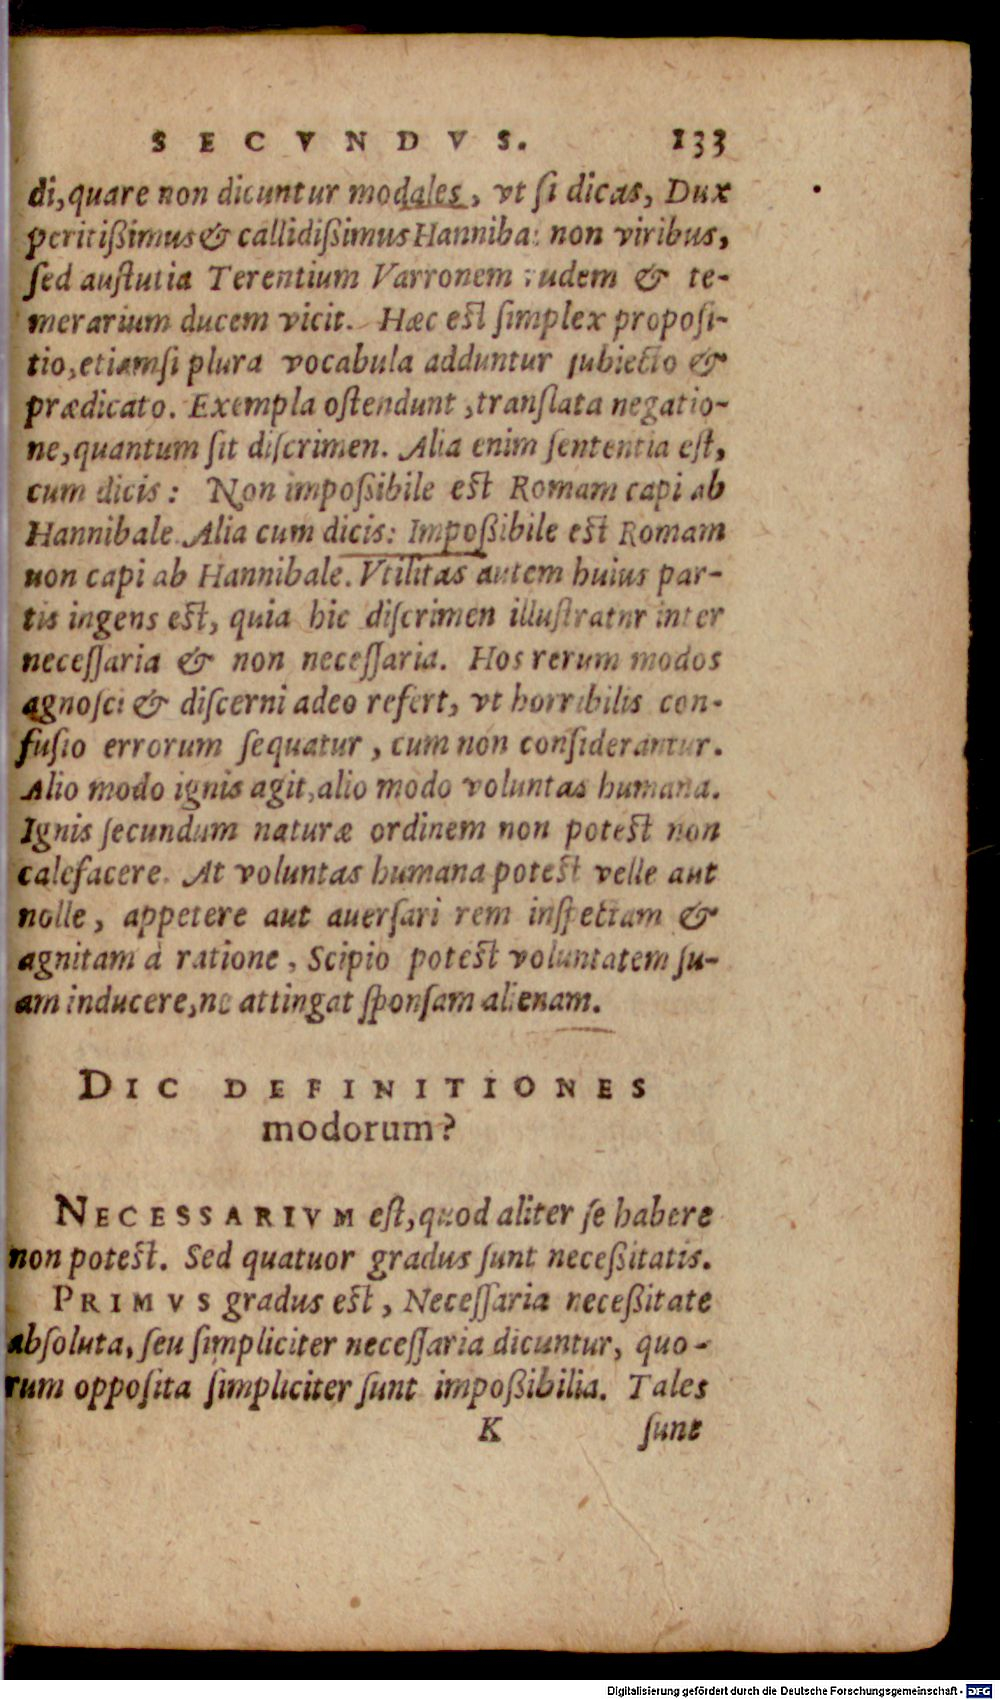 SECVNDVS. 133
di, quare non dicuntur modales, vt ſi dicas, Dux
peritißimus & callidißimus Hannibal non viribus,
ſed auſtutia Terentium Varronem rudem & te-
merarium ducem vicit. Hæc eſt ſimplex propoſi-
tio, etiamſi plura vocabula adduntur ſubiecto &
prædicato. Exempla oſtendunt, tranſlata negatio-
ne, quantum ſit diſcrimen. Alia enim ſententia eſt,
cum dicis: Non impoßibile eſt Romam capi ab
Hannibale. Alia cum dicis: Impoßibile eſt Romam
non capi ab Hannibale. Vtilitas autem huius par-
tis ingens eſt, quia hic diſcrimen illuſtratur inter
neceſſaria & non neceſſaria. Hos rerum modos
agnoſci & diſcerni adeo refert, vt horribilis con-
fuſio errorum ſequatur, cum non conſiderantur.
Alio modo ignis agit, alio modo voluntas humana.
Ignis ſecundum naturæ ordinem non poteſt non
calefacere. At voluntas humana poteſt velle aut
nolle, appetere aut auerſari rem inſpectam &
agnitam à ratione, Scipio poteſt voluntatem ſu-
am inducere, ne attingat ſponſam alienam.
DIC DEFINITIONES
modorum?
NECESSARIVM eſt, quod aliter ſe habere
non poteſt. Sed quatuor gradus ſunt neceßitatis.
PRIMVS gradus eſt, Neceſſaria neceßitate
abſoluta, ſeu ſimpliciter neceſſaria dicuntur, quo-
rum oppoſita ſimpliciter ſunt impoßibilia. Tales
K ſunt
Digitalisierung gefördert durch die Deutsche Forschungsgemeinschaft - DFG